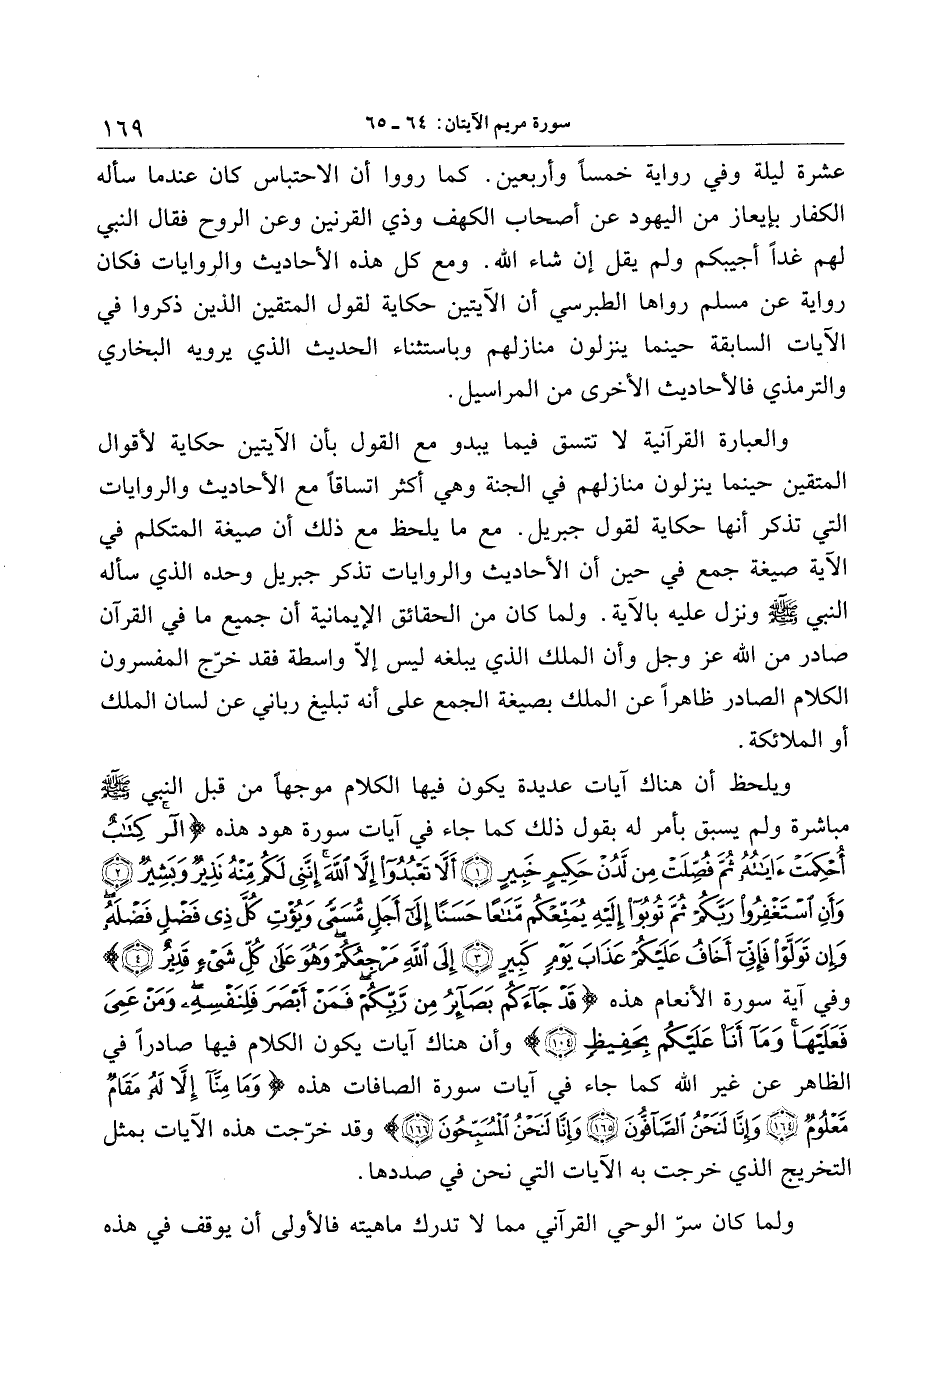 سورة مريم الآيتان: ٦٤ ـ ٦٥
١٦٩
عشرة ليلة وفي رواية خمساً وأربعين. كما رووا أن الاحتباس كان عندما سأله
الكفار بإيعاز من اليهود عن أصحاب الكهف وذي القرنين وعن الروح فقال النبي
لهم غداً أجيبكم ولم يقل إن شاء الله. ومع كل هذه الأحاديث والروايات فكان
رواية عن مسلم رواها الطبرسي أن الآيتين حكاية لقول المتقين الذين ذكروا في
الآيات السابقة حينما ينزلون منازلهم وباستثناء الحديث الذي يرويه البخاري
والترمذي فالأحاديث الأخرى من المراسيل.
والعبارة القرآنية لا تتسق فيما يبدو مع القول بأن الآيتين حكاية لأقوال
المتقين حينما ينزلون منازلهم في الجنة وهي أكثر اتساقاً مع الأحاديث والروايات
التي تذكر أنها حكاية لقول جبريل. مع ما يلحظ مع ذلك أن صيغة المتكلم في
الآية صيغة جمع في حين أن الأحاديث والروايات تذكر جبريل وحده الذي سأله
النبي ﷺ ونزل عليه بالآية. ولما كان من الحقائق الإيمانية أن جميع ما في القرآن
صادر من الله عز وجل وأن الملك الذي يبلغه ليس إلاّ واسطة فقد خرّج المفسرون
الكلام الصادر ظاهراً عن الملك بصيغة الجمع على أنه تبليغ رباني عن لسان الملك
أو الملائكة.
ويلحظ أن هناك آيات عديدة يكون فيها الكلام موجهاً من قبل النبي ﷺ
مباشرة ولم يسبق بأمر له بقول ذلك كما جاء في آيات سورة هود هذه ﴿الٓرۚ كِتَٰبٌ
أُحْكِمَتْ ءَايَٰتُهُۥ ثُمَّ فُصِّلَتْ مِن لَّدُنْ حَكِيمٍ خَبِيرٍ ١ أَلَّا تَعْبُدُوٓا۟ إِلَّا ٱللَّهَۚ إِنَّنِى لَكُم مِّنْهُ نَذِيرٌ وَبَشِيرٌ ٢
وَأَنِ ٱسْتَغْفِرُوا۟ رَبَّكُمْ ثُمَّ تُوبُوٓا۟ إِلَيْهِ يُمَتِّعْكُم مَّتَٰعًا حَسَنًا إِلَىٰٓ أَجَلٍ مُّسَمًّى وَيُؤْتِ كُلَّ ذِى فَضْلٍ فَضْلَهُۥۖ
وَإِن تَوَلَّوْا۟ فَإِنِّىٓ أَخَافُ عَلَيْكُمْ عَذَابَ يَوْمٍ كَبِيرٍ ٣ إِلَى ٱللَّهِ مَرْجِعُكُمْۖ وَهُوَ عَلَىٰ كُلِّ شَىْءٍ قَدِيرٌ ٤﴾
وفي آية سورة الأنعام هذه ﴿قَدْ جَآءَكُم بَصَآئِرُ مِن رَّبِّكُمْۖ فَمَنْ أَبْصَرَ فَلِنَفْسِهِۦۖ وَمَنْ عَمِىَ
فَعَلَيْهَاۚ وَمَآ أَنَا۠ عَلَيْكُم بِحَفِيظٍ ١٠٤﴾ وأن هناك آيات يكون الكلام فيها صادراً في
الظاهر عن غير الله كما جاء في آيات سورة الصافات هذه ﴿وَمَا مِنَّآ إِلَّا لَهُۥ مَقَامٌ
مَّعْلُومٌ ١٦٤ وَإِنَّا لَنَحْنُ ٱلصَّآفُّونَ ١٦٥ وَإِنَّا لَنَحْنُ ٱلْمُسَبِّحُونَ ١٦٦﴾ وقد خرّجت هذه الآيات بمثل
التخريج الذي خرجت به الآيات التي نحن في صددها.
ولما كان سرّ الوحي القرآني مما لا تدرك ماهيته فالأولى أن يوقف في هذه